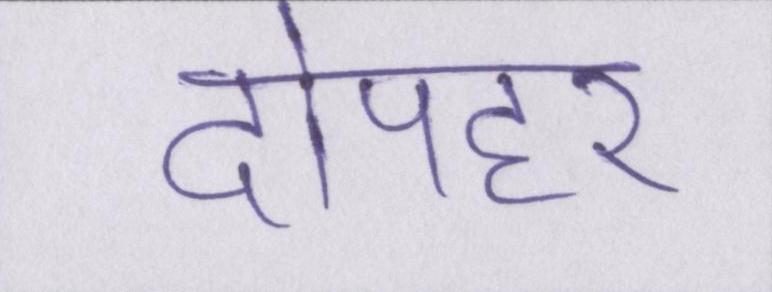 दोपहर